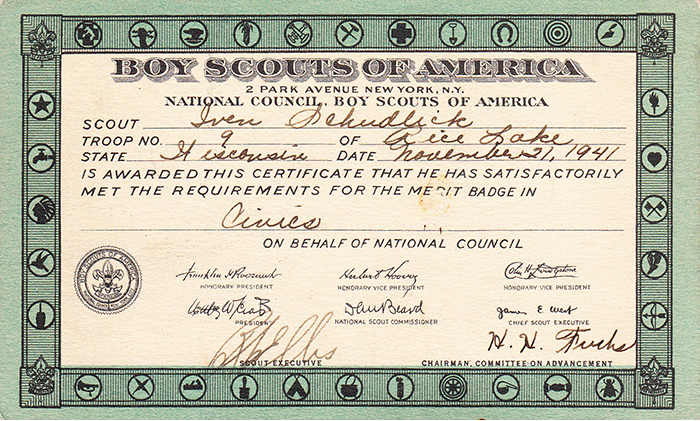 BOY SCOUTS OF AMERICA
2 PARK AVENUE NEW YORK, N.Y.
NATIONAL COUNCIL, BOY SCOUTS OF AMERICA
SCOUT Iven Schudlick
TROOP NO. 9 OF Rice Lake
STATE Wisconsin DATE November 21, 1941
IS AWARDED THIS CERTIFICATE THAT HE HAS SATISFACTORILY
MET THE REQUIREMENTS FOR THE MERIT BADGE IN
Civics
ON BEHALF OF NATIONAL COUNCIL
BOY SCOUTS OF AMERICA
Franklin D Roosevelt Herbert Hoover
HONORARY PRESIDENT HONORARY VICE PRESIDENT HONORARY VICE PRESIDENT
Dan Beard James E. West
PRESIDENT NATIONAL SCOUT COMMISSIONER CHIEF SCOUT EXECUTIVE
H. H. Fuchs
SCOUT EXECUTIVE CHAIRMAN, COMMITTEE ON ADVANCEMENT